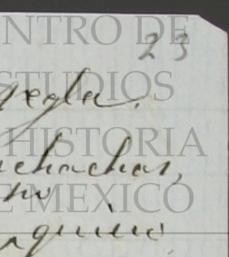 NTRO DE
23
STUDIOS
regla.
HISTORIA
uchachas,
no
E MEXICO
quiso